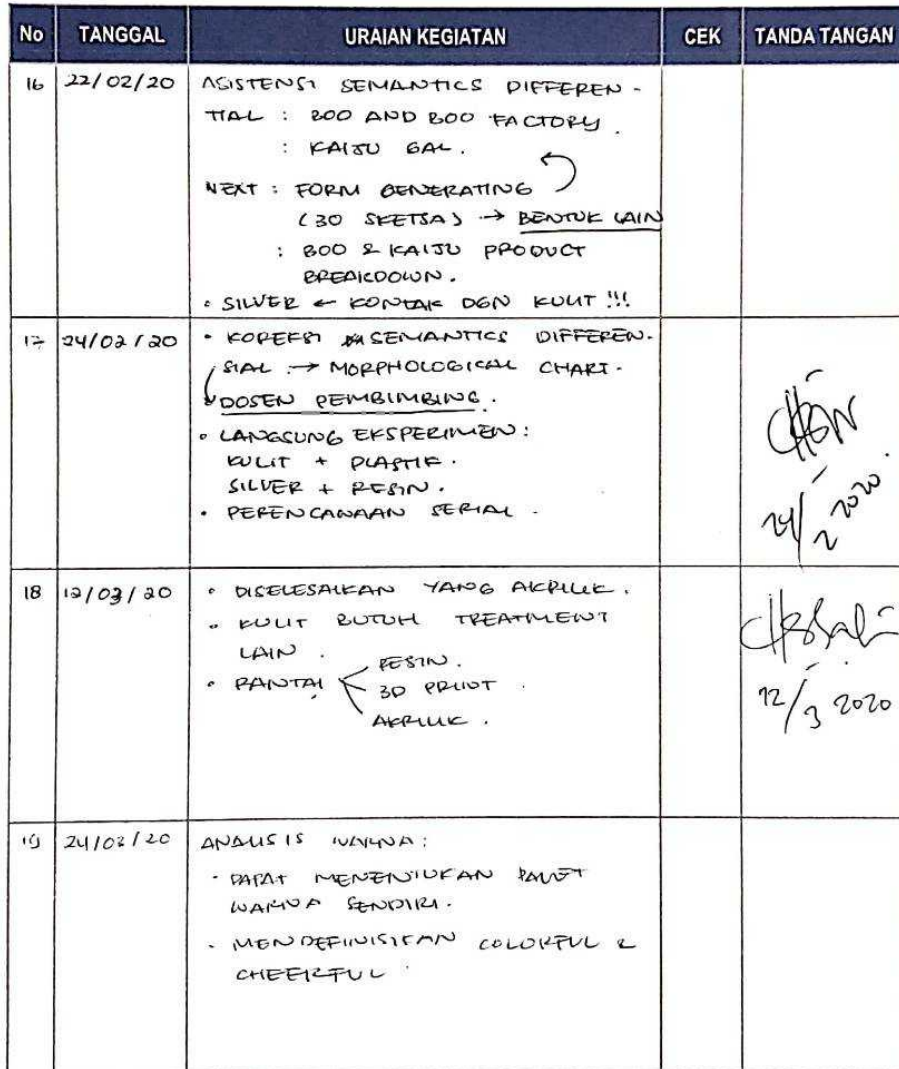 No TANGGAL URAIAN KEGIATAN CEK TANDA TANGAN
16 22/02/20 ASISTENSI SEMANTICS DIFFEREN -
TIAL : BOO AND BOO FACTORY.
: KAIJU GAL.
NEXT : FORM GENERATING
(30 SKETSA) → BENTUK LAIN
: BOO & KAIJU PRODUCT
BREAKDOWN.
• SILVER ← KONTAK DGN KULIT !!!
17 24/02/20 • KOREKSI SEMANTICS DIFFEREN-
SIAL → MORPHOLOGICAL CHART.
DOSEN PEMBIMBING.
• LANGSUNG EKSPERIMEN:
KULIT + PLASTIK.
SILVER + RESIN.
• PERENCANAAN SERIAL.
24/2 2020.
18 12/03/20 • DISELESAIKAN YANG AKRILIK.
• KULIT BUTUH TREATMENT
LAIN.
• RANTAI RESIN.
3D PRINT.
AKRILIK.
12/3 2020
19 24/03/20 ANALISIS WARNA:
• DAPAT MENENTUKAN PALET
WARNA SENDIRI.
• MENDEFINISIKAN COLORFUL &
CHEERFUL